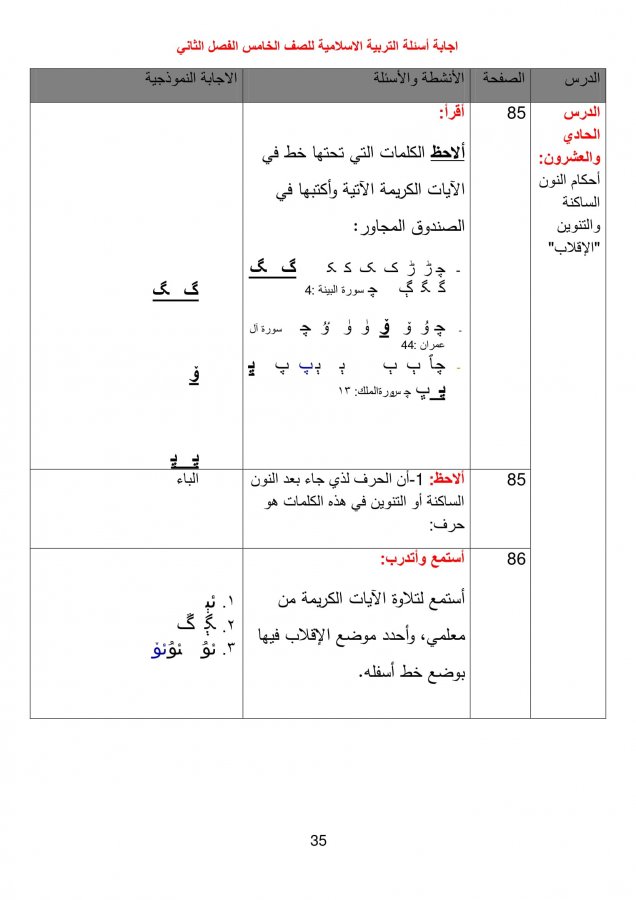 اجابة أسئلة التربية الاسلامية للصف الخامس الفصل الثاني
الدرس الصفحة الأنشطة والأسئلة الاجابة النموذجية
الدرس
الحادي
والعشرون:
أحكام النون
الساكنة
والتنوين
"الإقلاب"
85
أقرأ:
ألاحظ الكلمات التي تحتها خط في
الآيات الكريمة الآتية وأكتبها في
الصندوق المجاور:
- چ ڑ ڑ ک ک ک ک گ گ
گ گ ڳ چ سورة البينة :4
- چ ۇ ۆ ۆ ۈ ۈ ۇٴ چ سورة آل
عمران :44
سورةالملك: ١٣
گ گ
ۆ
85
ألاحظ: 1-أن الحرف لذي جاء بعد النون
الساكنة أو التنوين في هذه الكلمات هو
حرف:
الباء
86
أستمع وأتدرب:
أستمع لتلاوة الآيات الكريمة من
معلمي، وأحدد موضع الإقلاب فيها
بوضع خط أسفله.
١.
٢.
٣.
35